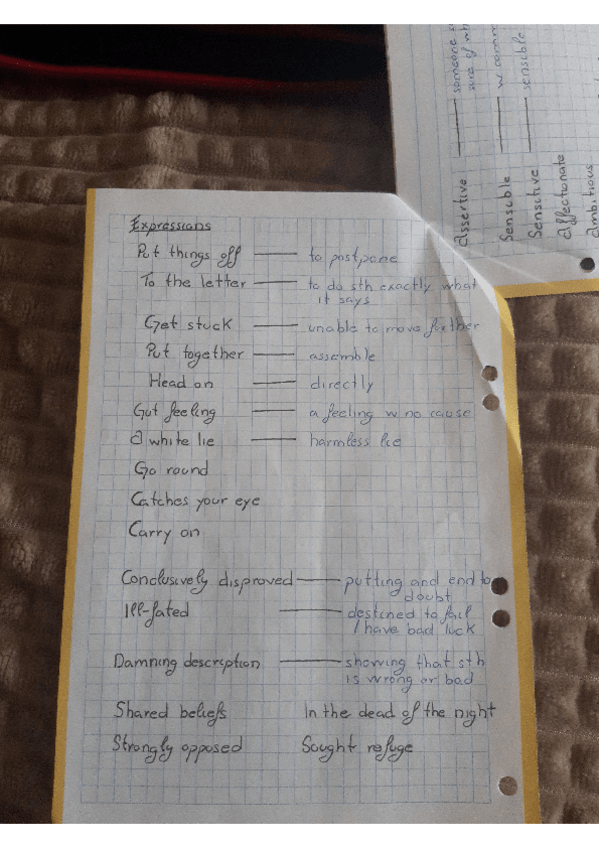 Expressions
Put things off — to postpone
To the letter — to do sth exactly what
it says
Get stuck — unable to move further
Put together — assemble
Head on — directly
Gut feeling — a feeling w no cause
A white lie — harmless lie
Go round
Catches your eye
Carry on
Conclusively disproved — putting and end to
doubt
Ill-fated — destined to fail
/ have bad luck
Damning description — showing that sth
is wrong or bad
Shared beliefs In the dead of the night
Strongly opposed Sought refuge
Assertive — someone
sure of
Sensible — w comm
Sensitive — sensible
Affectionate
Ambitious